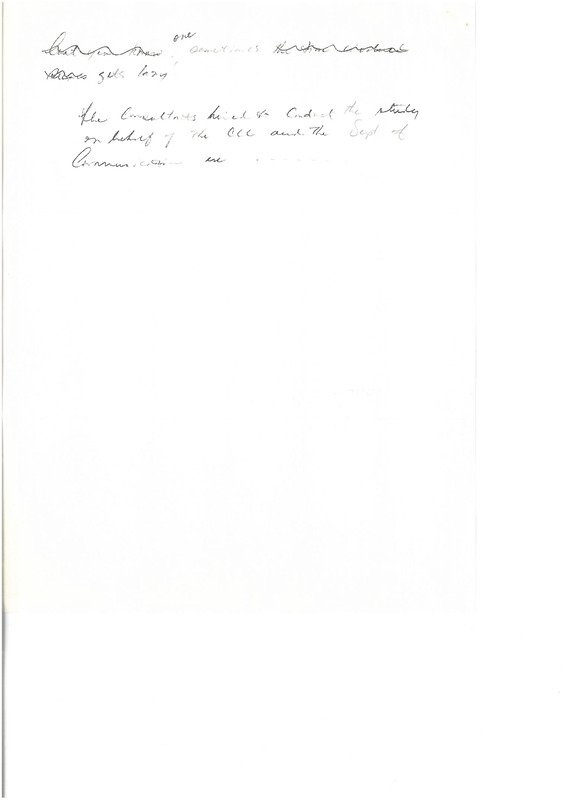 one
sometimes
gets lazy
The Consultants hired to Conduct the study
on behalf of the CCC and the Dept of
Communications are . . . . . . .